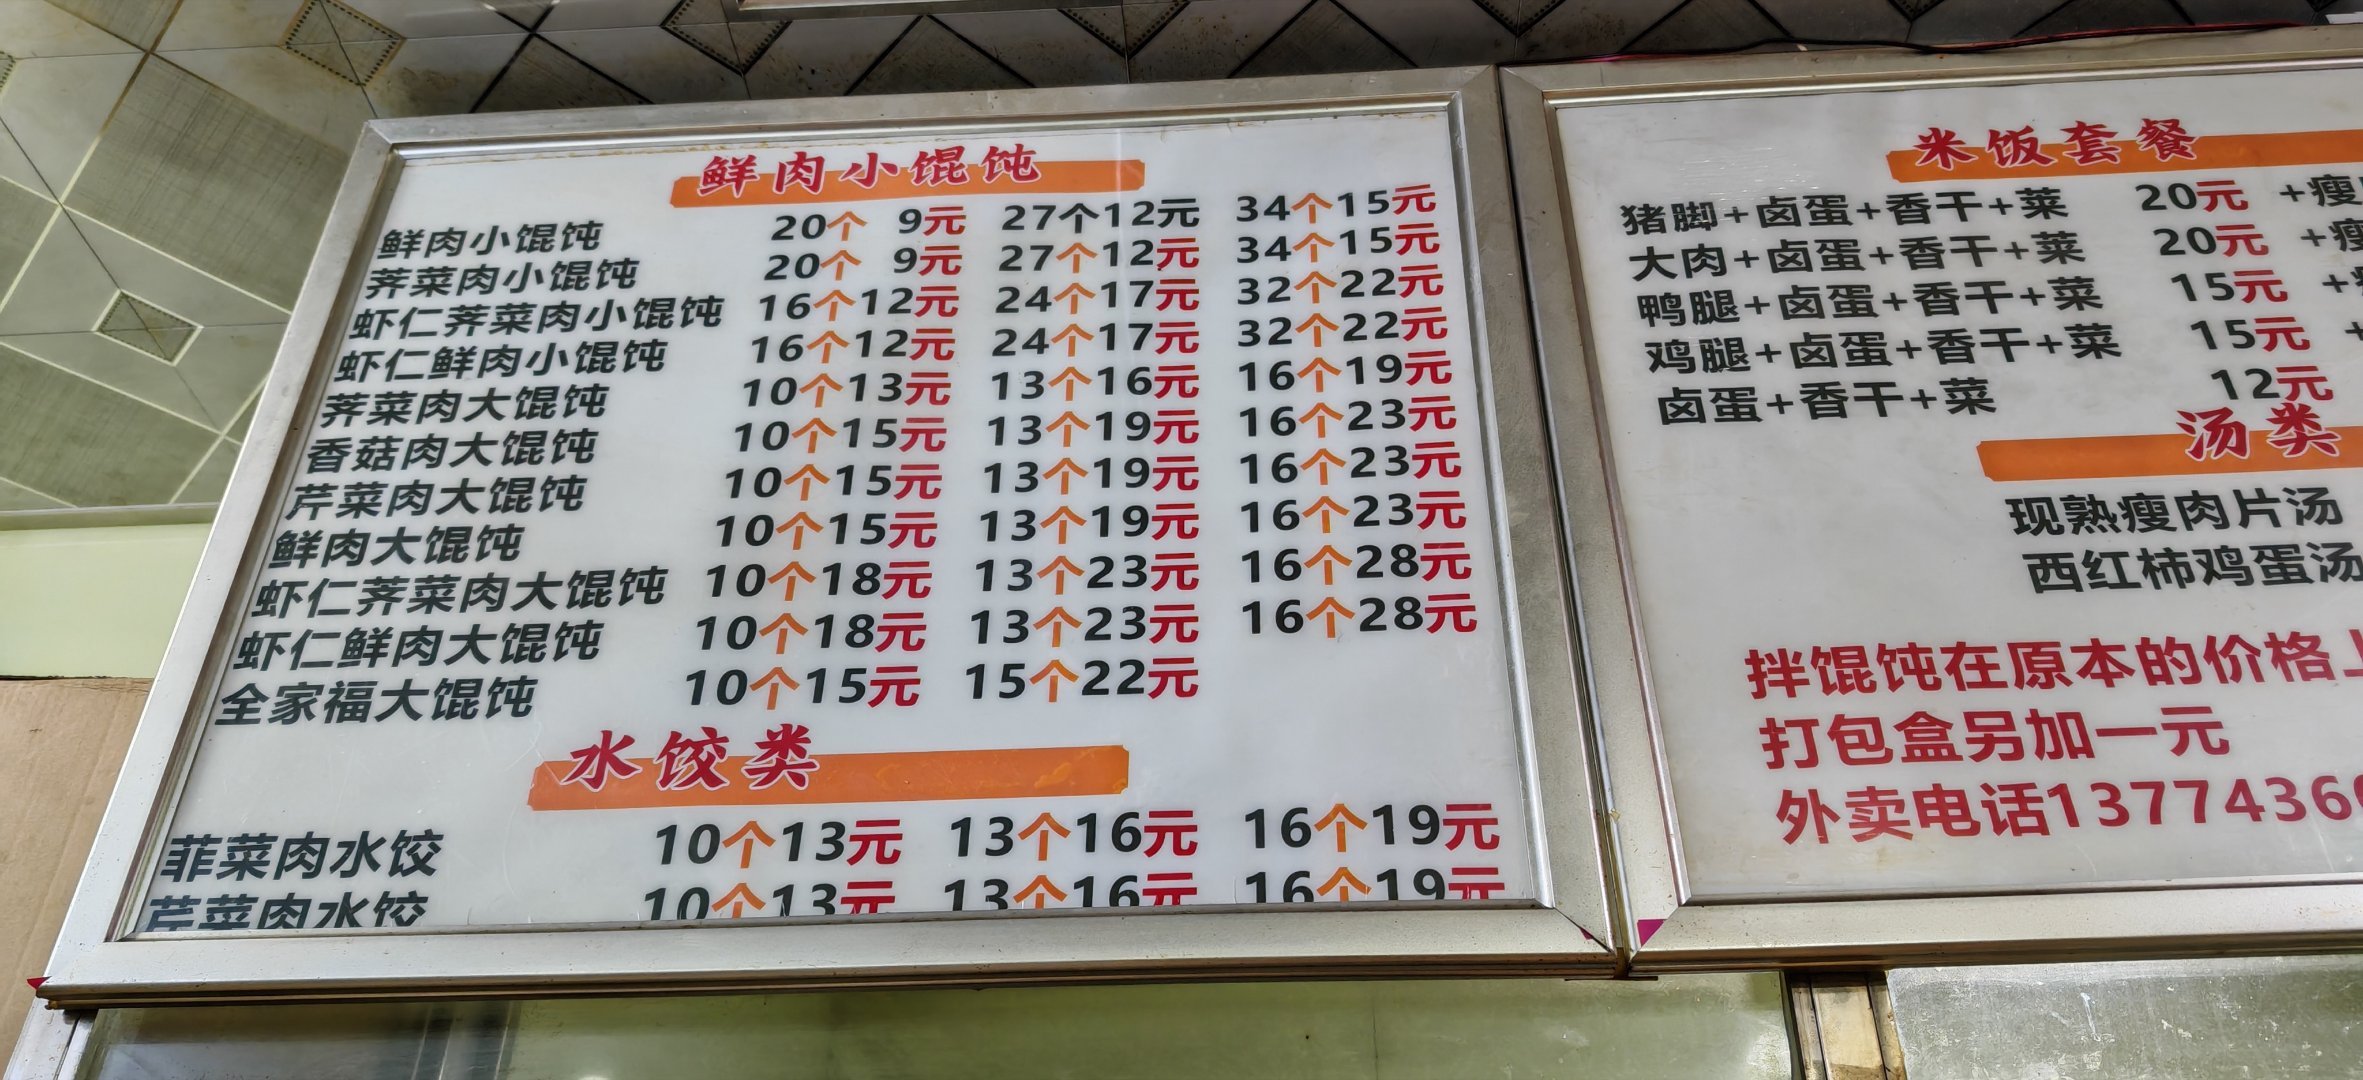 鲜肉小馄饨
鲜肉小馄饨 20个 9元 27个12元 34个15元
荠菜肉小馄饨 20个 9元 27个12元 34个15元
虾仁荠菜肉小馄饨 16个12元 24个17元 32个22元
虾仁鲜肉小馄饨 16个12元 24个17元 32个22元
荠菜肉大馄饨 10个13元 13个16元 16个19元
香菇肉大馄饨 10个15元 13个19元 16个23元
芹菜肉大馄饨 10个15元 13个19元 16个23元
鲜肉大馄饨 10个15元 13个19元 16个23元
虾仁荠菜肉大馄饨 10个18元 13个23元 16个28元
虾仁鲜肉大馄饨 10个18元 13个23元 16个28元
全家福大馄饨 10个15元 15个22元
水饺类
菲菜肉水饺 10个13元 13个16元 16个19元
芹菜肉水饺 10个13元 13个16元 16个19元
米饭套餐
猪脚+卤蛋+香干+菜 20元 +瘦
大肉+卤蛋+香干+菜 20元 +瘦
鸭腿+卤蛋+香干+菜 15元 +
鸡腿+卤蛋+香干+菜 15元 +
卤蛋+香干+菜 12元
汤类
现熟瘦肉片汤
西红柿鸡蛋汤
拌馄饨在原本的价格上
打包盒另加一元
外卖电话1377436